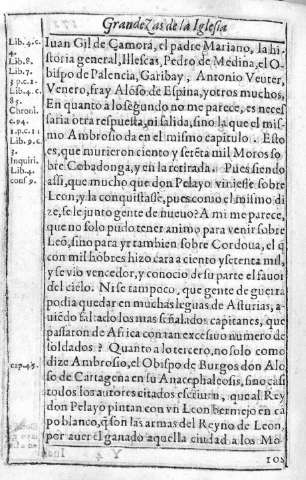 Grandezas de la Iglesia
Lib.4.c.
4.
Lib.8.
Lib.7.
1 p.c.1.
Lib.4.c.
85.
Chroni.
c.94.
1.p.c.11
Lib.9.c.
3.
Inquiri.
Lib.4.
cons 9.
cap.45.
Iuan Gil de Çamora, el padre Mariano, la hi-
storia general, Illescas, Pedro de Medina, el O-
bispo de Palencia, Garibay, Antonio Veuter,
Venero, fray Alõso de Espina, y otros muchos.
En quanto a lo segundo no me parece, es neces
saria otra respuesta, ni salida, sino la que el mis-
mo Ambrosio da en el mismo capitulo. Esto
es, que murieron ciento y setẽta mil Moros so-
bre Cobadonga, y en la retirada. Pues siendo
assi, que mucho que don Pelayo viniesse sobre
Leon, y la conquistasse, pues como el mismo di
ze, se le junto gente de nueuo? A mi me parece,
que no solo pudo tener animo para venir sobre
Leõ, sino para yr tambien sobre Cordoua, el q̃
con mil hõbres hizo cara a ciento y setenta mil,
y se vio vencedor, y conocio de su parte el fauor
del cielo. Ni se tampoco, que gente de guerra
podia quedar en muchas leguas de Asturias, a-
uiẽdo faltado los mas señalados capitanes, que
passaron de Africa con tan excessiuo numero de
soldados? Quanto a lo tercero, no solo como
dize Ambrosio, el Obispo de Burgos don Alo
so de Cartagena en su Anacephaleosis, sino casi
todos los autores citados escriuen, que al Rey
don Pelayo pintan con vn Leon bermejo en ca
po blanco, q̃ son las armas del Reyno de Leon,
por auer el ganado aquella ciudad a los Mo-
ros